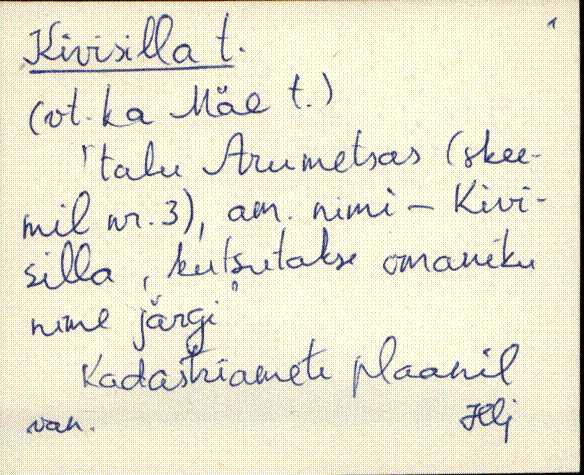 1
Kivisilla t.
(vt. ka Mäe t.)
"talu Arumetsas (skee-
mil nr. 3), am. nimi – Kivi-
silla, kutsutakse omaniku
nime järgi"
Kadastriameti plaanil
van. Hlj